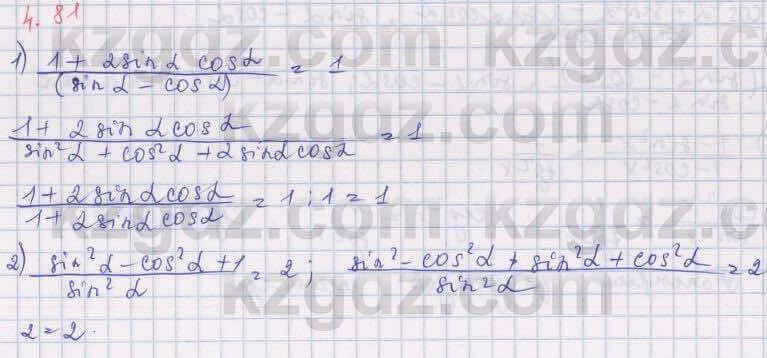 4.81
1) (1 + 2 sin α cos α) / (sin α − cos α) = 1
(1 + 2 sin α cos α) / (sin² α + cos² α + 2 sin α cos α) = 1
(1 + 2 sin α cos α) / (1 + 2 sin α cos α) = 1 ; 1 = 1
2) (sin² α − cos² α + 1) / (sin² α) = 2 ; (sin² − cos² α + sin² α + cos² α) / (sin² α) = 2
2 = 2.
kzgdz.com